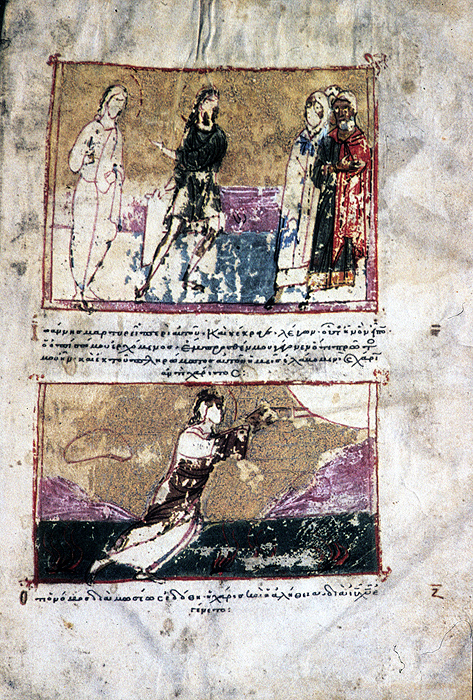 Ιωάννης μαρτυρεῖ περὶ αὐτοῦ· Καὶ κέκραγε λέγων· οὗτος ἦν ὃν εἶπον·
ὁ ὀπίσω μου ἐρχόμενος· ἔμπροσθέν μου γέγονεν ὅτι πρῶτός
μου ἦν· καὶ ἐκ τοῦ πληρώματος αὐτοῦ ἡμεῖς ἐλάβομεν· χάριν
ἀντὶ χάριτος:
Ὅτι ὁ νόμος διὰ μωσέως ἐδόθη· ἡ χάρις καὶ ἡ ἀλήθεια διὰ ιυ χυ ἐ
γένετο: